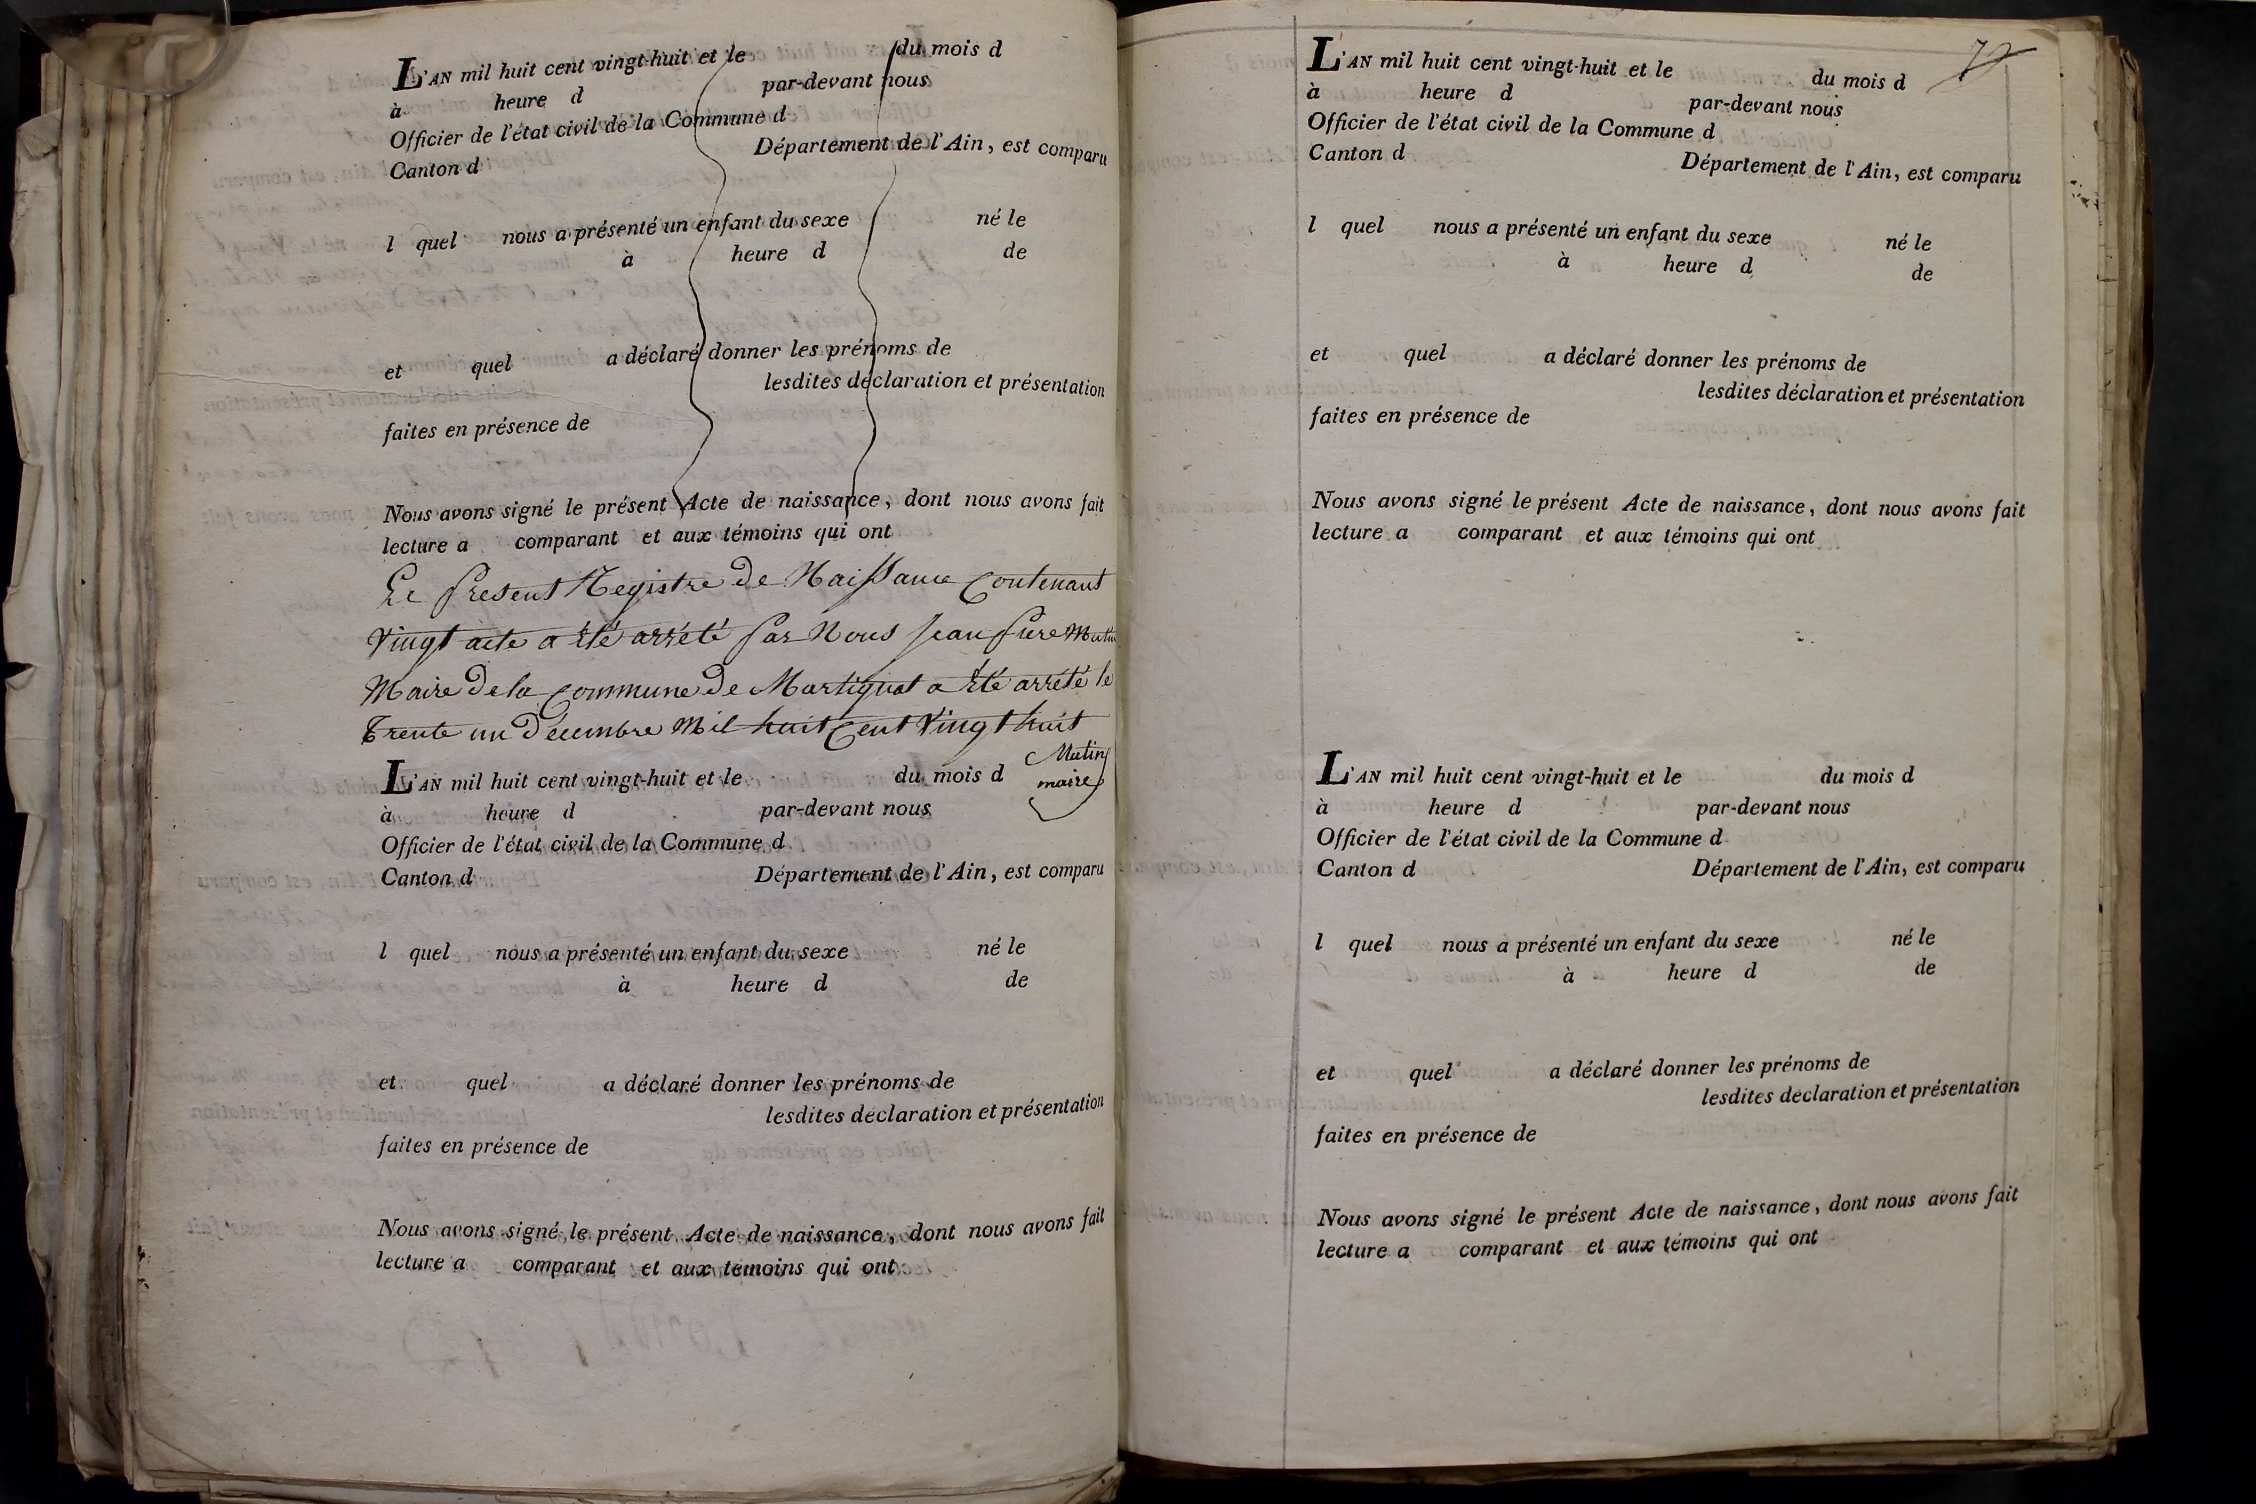 L'AN mil huit cent vingt-huit et le du mois d
à heure d par-devant nous
Officier de l'état civil de la Commune d
Canton d Département de l'Ain, est comparu
l quel nous a présenté un enfant du sexe né le
à heure d de
et quel a déclaré donner les prénoms de
lesdites déclaration et présentation
faites en présence de
Nous avons signé le présent Acte de naissance, dont nous avons fait
lecture a comparant et aux témoins qui ont
Le present Registre de Naissance Contenant
Vingt acte a été arrété par Nous jean piere Mutin
Maire de la Commune de Martignat a été arrété le
trente un decembre Mil huit Cent Vingt huit
Mutin
maire
L'AN mil huit cent vingt-huit et le du mois d
à heure d par-devant nous
Officier de l'état civil de la Commune d
Canton d Département de l'Ain, est comparu
l quel nous a présenté un enfant du sexe né le
à heure d de
et quel a déclaré donner les prénoms de
lesdites déclaration et présentation
faites en présence de
Nous avons signé le présent Acte de naissance, dont nous avons fait
lecture a comparant et aux témoins qui ont
L'AN mil huit cent vingt-huit et le du mois d
à heure d par-devant nous
Officier de l'état civil de la Commune d
Canton d Département de l'Ain, est comparu
l quel nous a présenté un enfant du sexe né le
à heure d de
et quel a déclaré donner les prénoms de
lesdites déclaration et présentation
faites en présence de
Nous avons signé le présent Acte de naissance, dont nous avons fait
lecture a comparant et aux témoins qui ont
L'AN mil huit cent vingt-huit et le du mois d
à heure d par-devant nous
Officier de l'état civil de la Commune d
Canton d Département de l'Ain, est comparu
l quel nous a présenté un enfant du sexe né le
à heure d de
et quel a déclaré donner les prénoms de
lesdites déclaration et présentation
faites en présence de
Nous avons signé le présent Acte de naissance, dont nous avons fait
lecture a comparant et aux témoins qui ont